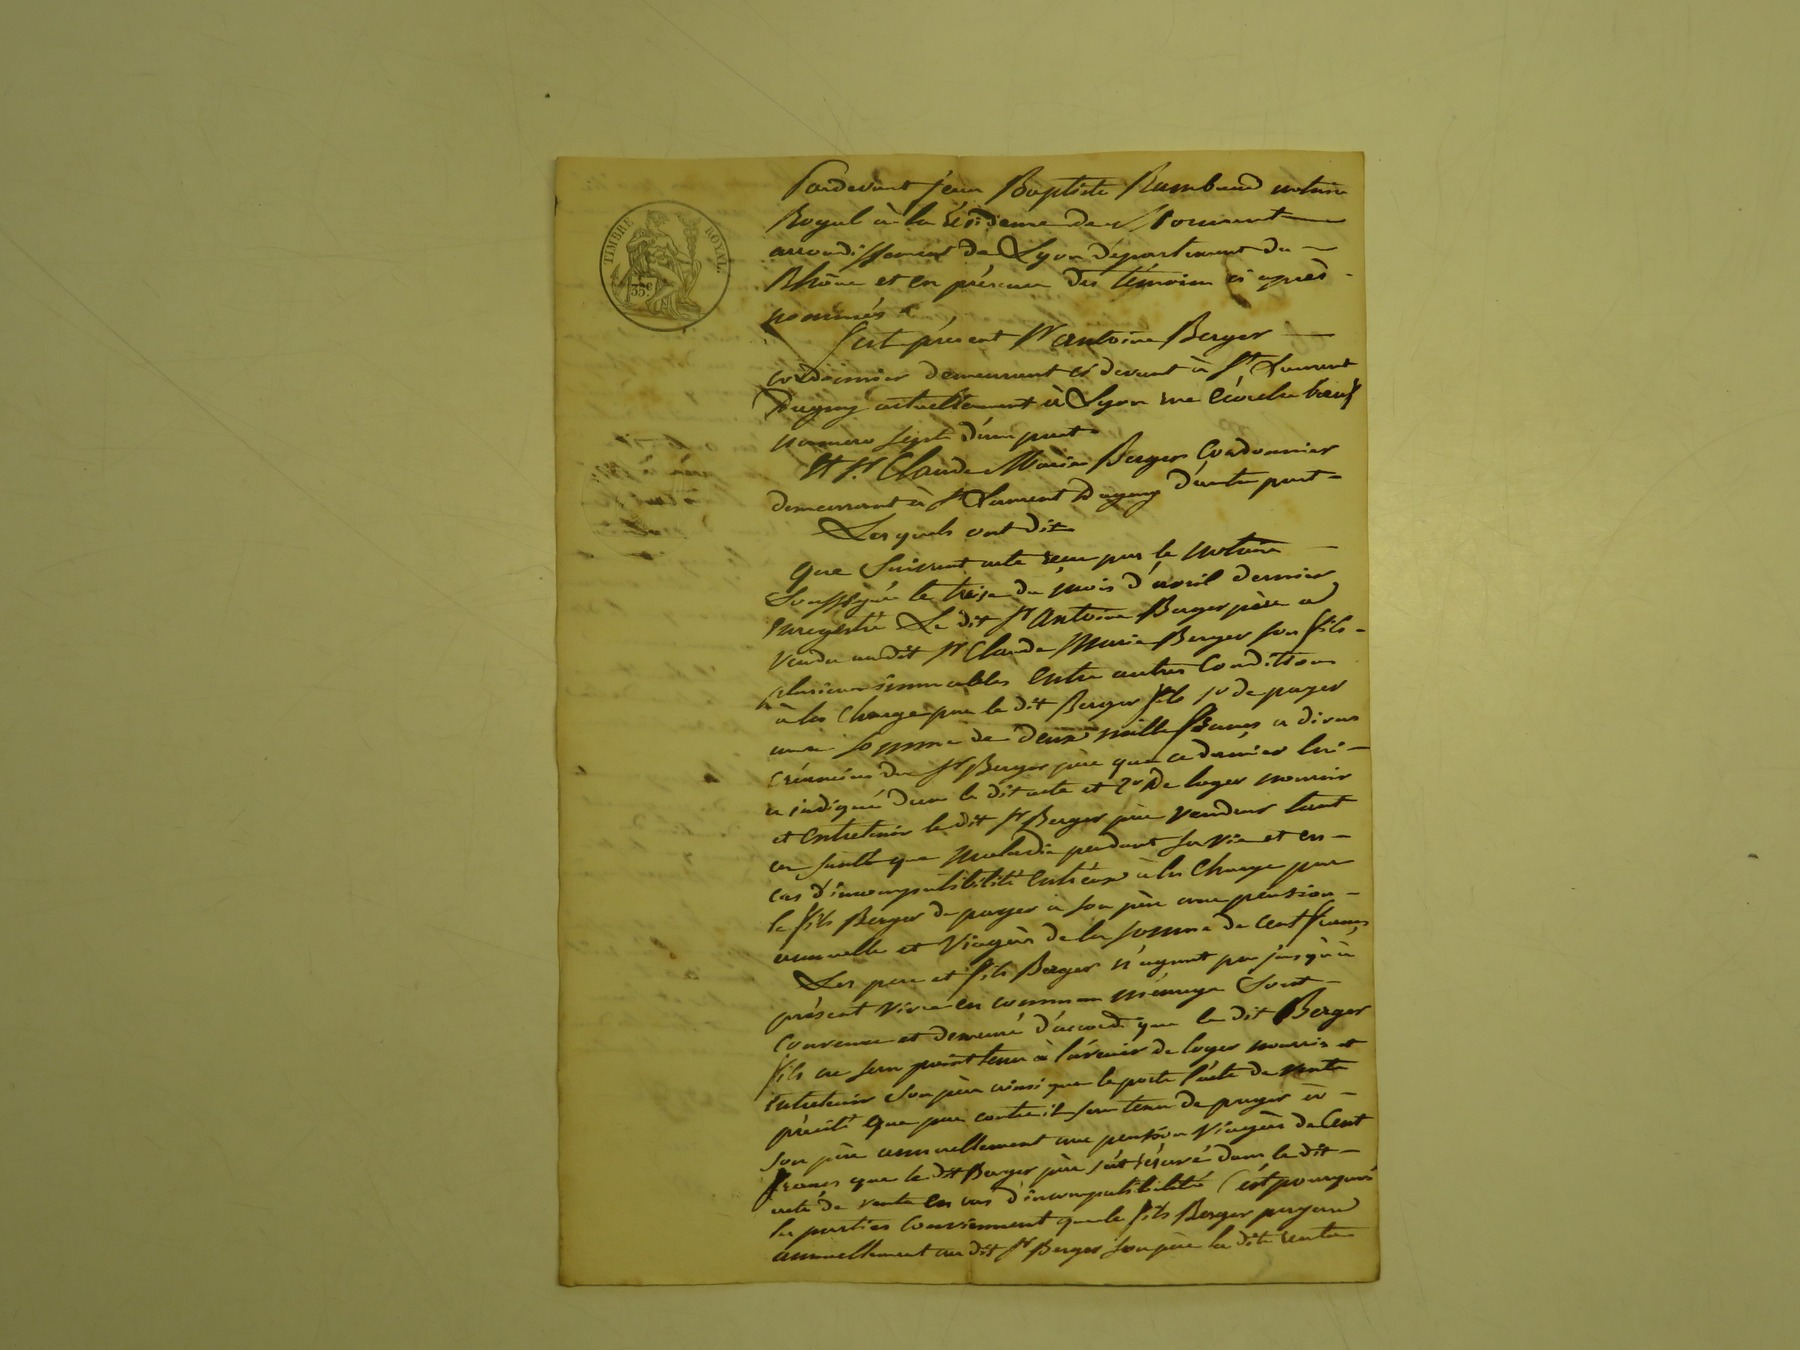 TIMBRE ROYAL.
35c
Pardevant Jean Baptiste Rambaud notaire
Royal à la Résidence de Mornant
arrondissement de Lyon département du
Rhône et en présence des témoins ci après
nommés
fut présent Sr antoine Berger
cordonnier demeurant ci devant à St Laurent
Dagny actuellement à Lyon rue Ecorche boeuf
numero sept d'une part
Et Sr Claude Marie Berger Cordonnier
demeurant à St Laurent Dagny d'autre part
Lesquels ont dit
Que Suivant acte reçu par le notaire
Soussigné le treize du mois d'avril dernier
Enregistré Le dit Sr Antoine Berger père a
Vendu audit Sr Claude Marie Berger son fils
plusieurs immeubles Entre autres Conditions
à la Charge par le dit Berger fils 1o de payer
une somme de deux mille francs a divers
créanciers du Sr Berger père que ce dernier lui
a indiqué dans le dit acte et 2o De loger nourrir
et Entretenir le dit Sr Berger père vendeur tant
en santé que Maladie pendant sa vie et en
cas d'incompatibilité entr'eux à la Charge par
le fils Berger de payer à son père une pension
annuelle et Viagère de la somme de cent francs
Les père et fils Berger n'ayant pu jusqu'à
présent vivre en commun ménage Sont
Convenus et demeuré d'accord que le dit Berger
fils ne sera point tenu à l'avenir de loger nourrir et
Entretenir Son père ainsi que le porte l'acte de vente
précité Que par contre il sera tenu de payer à
Son père annuellement une pension Viagère de Cent
francs que le dit Berger père s'est réservé dans le dit
acte de vente en cas d'incompatibilité C'est pourquoi
les parties Conviennent que le fils Berger payera
annuellement au dit Sr Berger son père la dite rente